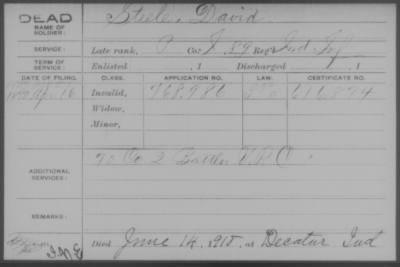 DEAD
NAME OF SOLDIER: Steele, David
SERVICE: Late rank, P Co. I, 89 Reg't Ind Inf
TERM OF SERVICE: Enlisted , 1 Discharged , 1
DATE OF FILING. CLASS. APPLICATION NO. LAW. CERTIFICATE NO.
16 Invalid, 768,986 616,874
Widow,
Minor,
ADDITIONAL SERVICES: Co 2 Batt'n V.R.C.
REMARKS:
Died June 14, 1915, at Decatur Ind